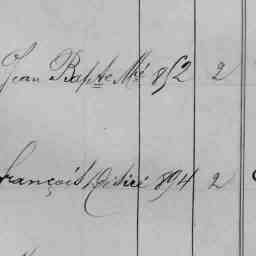 Jean Bapte Mie 852 2
François Désiré 894 2